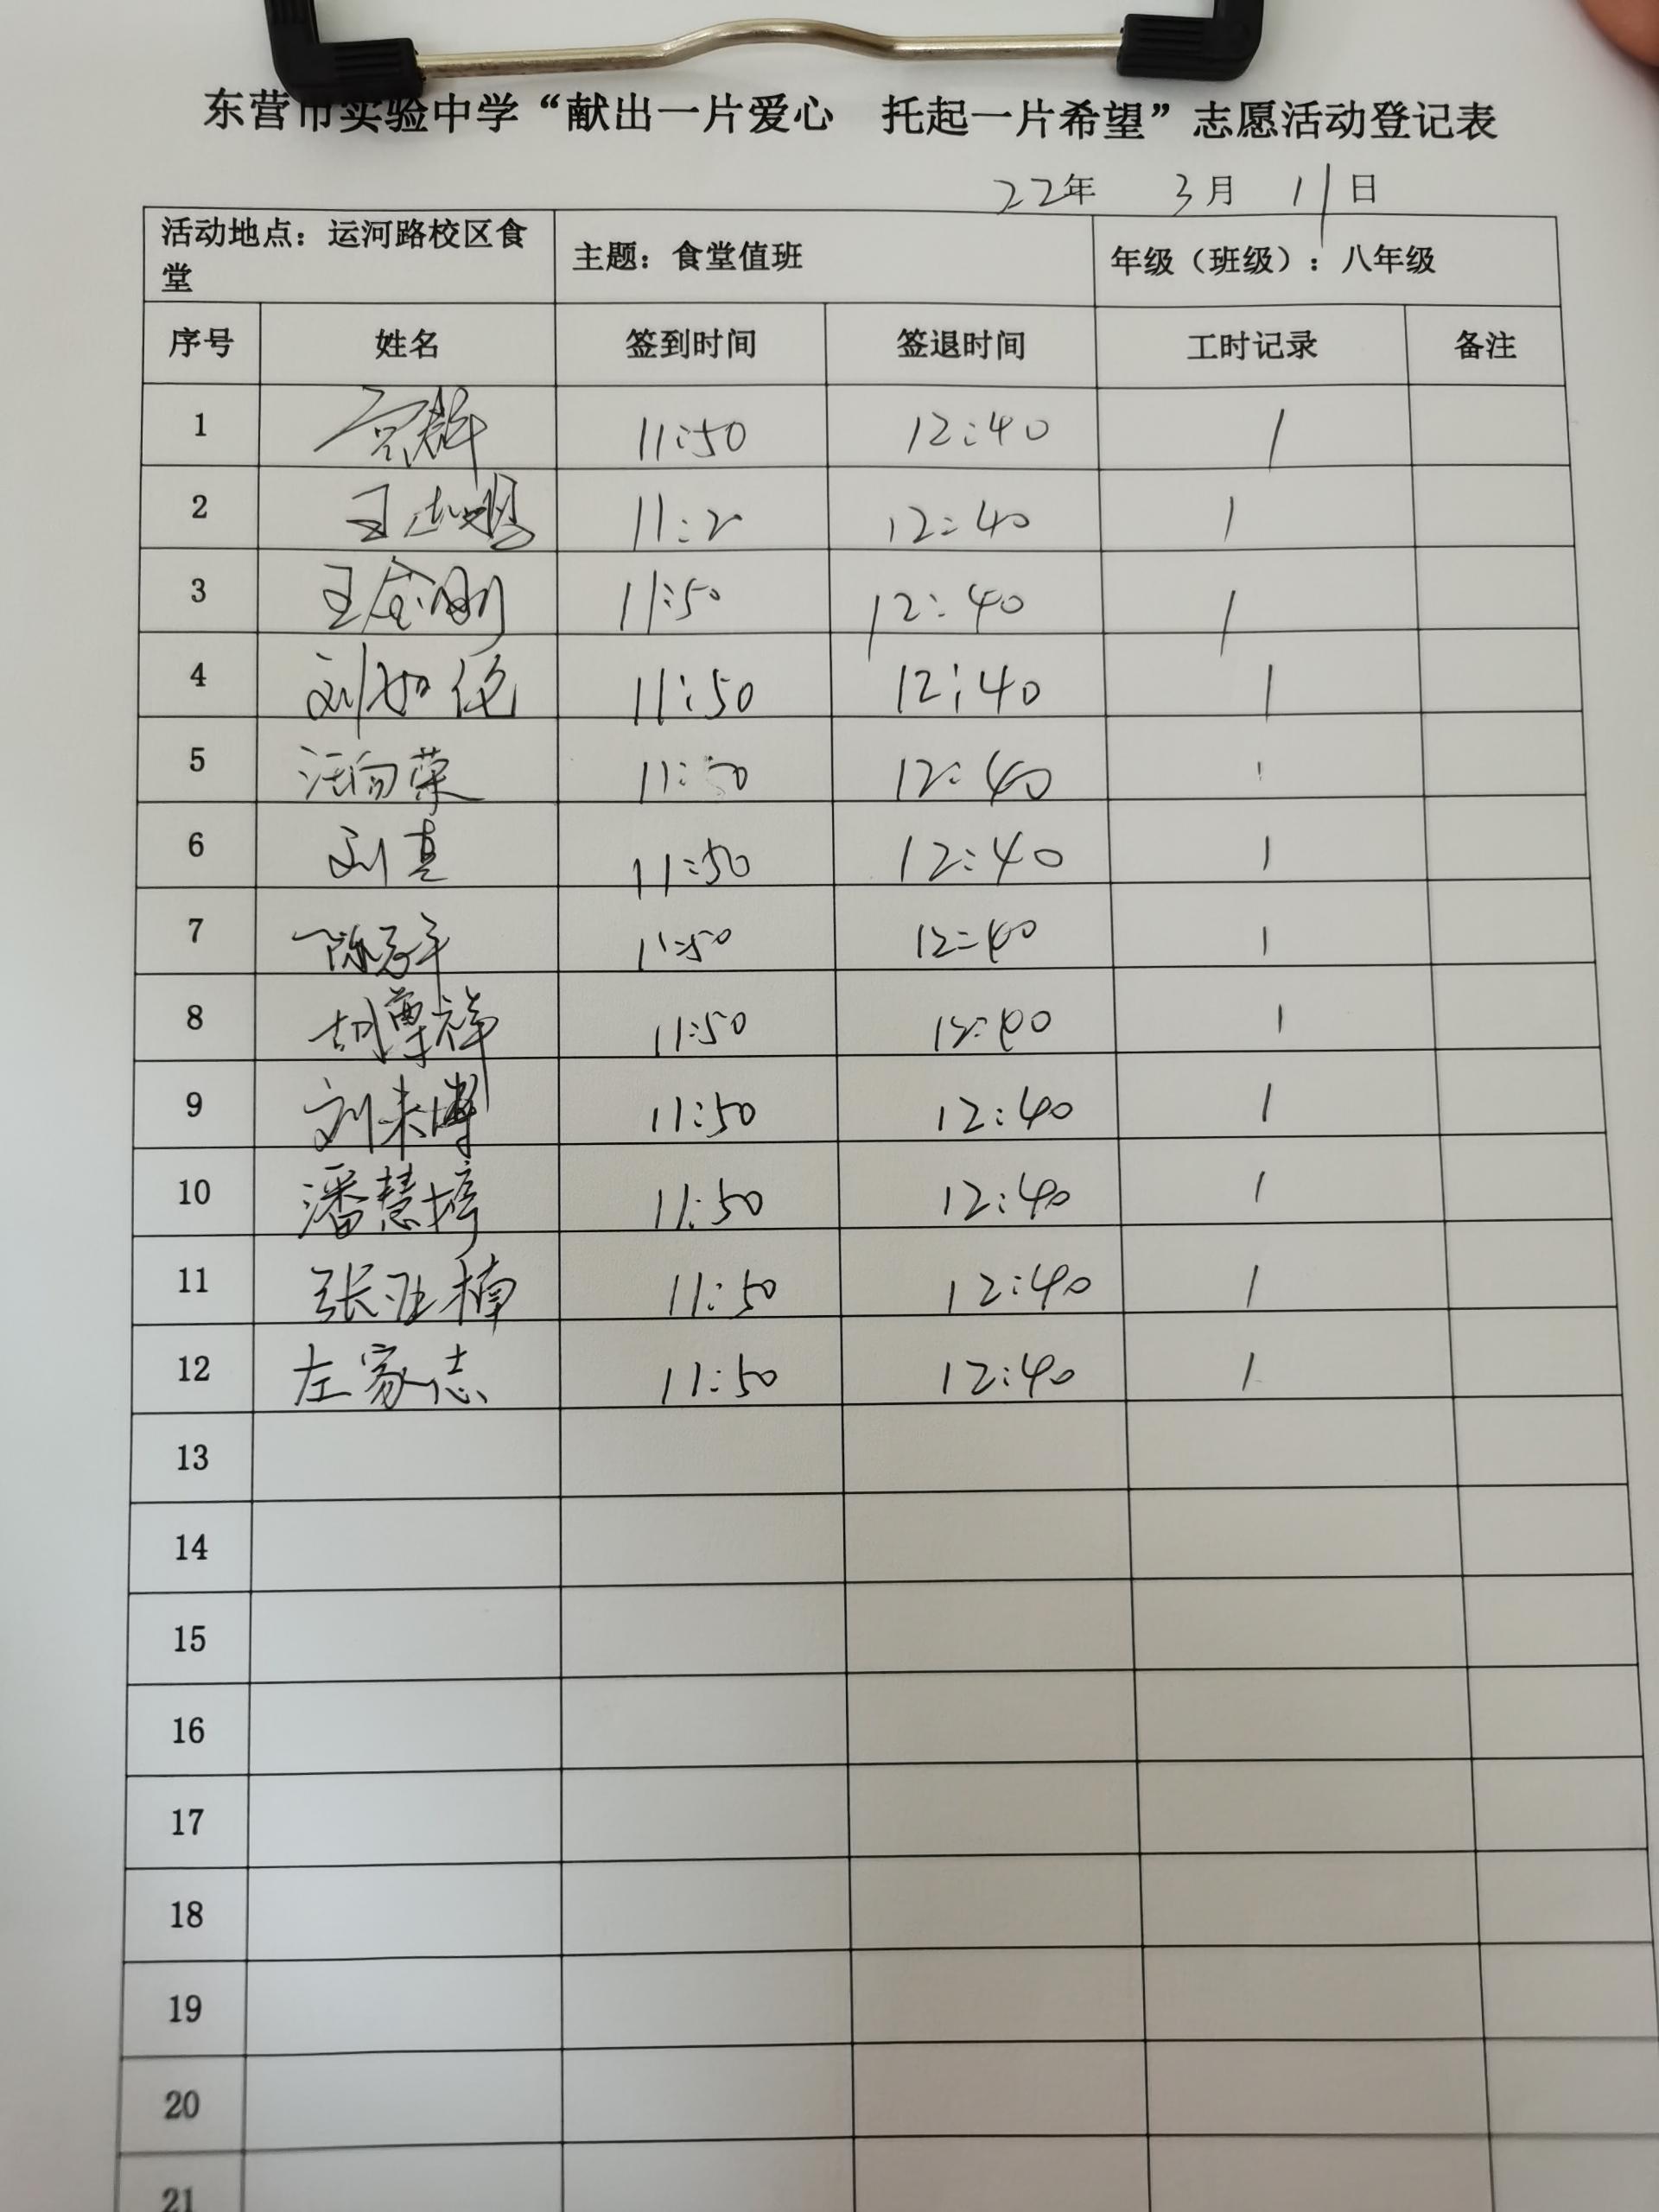 东营市实验中学“献出一片爱心 托起一片希望”志愿活动登记表
22年 3月 11日
活动地点：运河路校区食堂 主题：食堂值班 年级（班级）：八年级
序号 姓名 签到时间 签退时间 工时记录 备注
1 11:50 12:40 1
2 王 12:40 1
3 王金刚 11:50 12:40 1
4 刘如 11:50 12:40 1
5 汪向荣 12:40
6 刘真 11:50 12:40 1
7 陈 11:50 12:40 1
8 胡尊祥 11:50 12:40 1
9 刘来博 11:50 12:40 1
10 潘慧婷 11:50 12:40 1
11 张亚楠 11:50 12:40 1
12 左家志 11:50 12:40 1
13
14
15
16
17
18
19
20
21